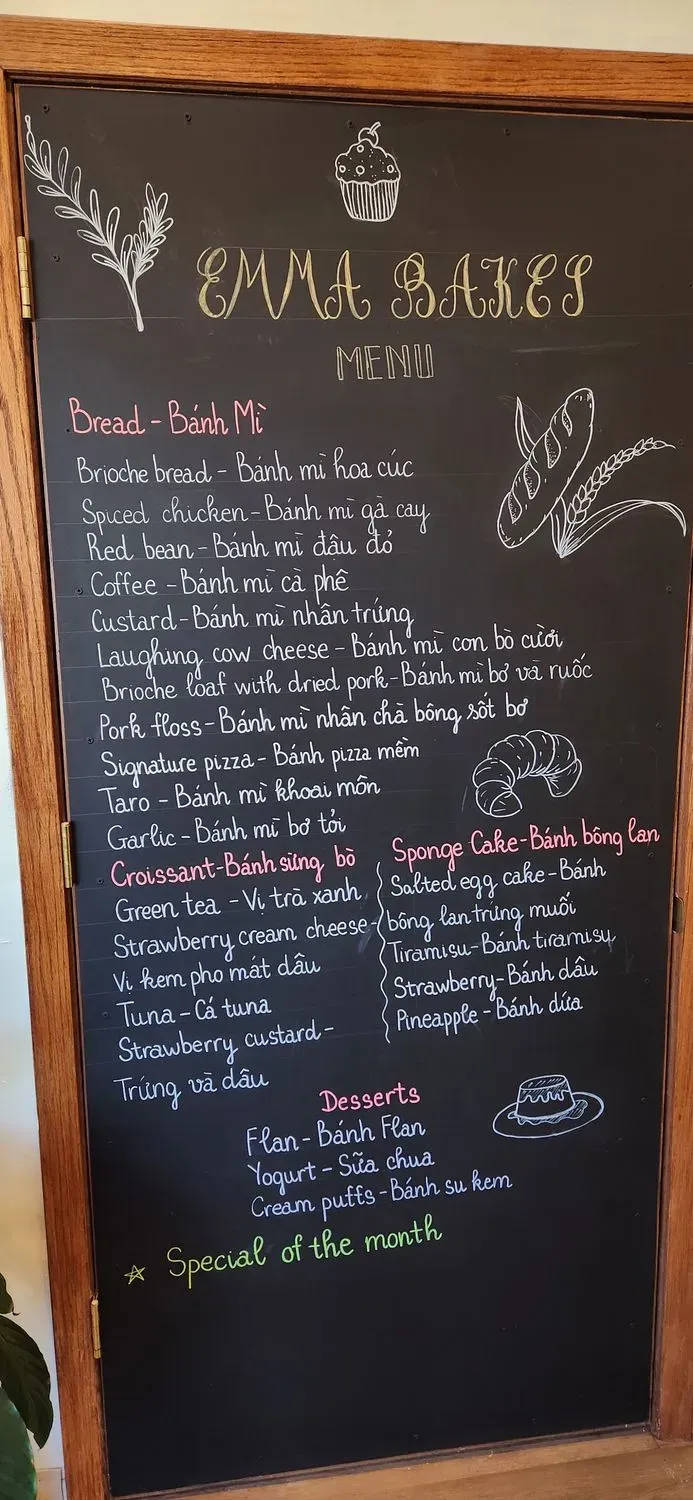 EMMA BAKES
MENU
Bread - Bánh Mì
Brioche bread - Bánh mì hoa cúc
Spiced chicken - Bánh mì gà cay
Red bean - Bánh mì đâu đỏ
Coffee - Bánh mì cà phê
Custard - Bánh mì nhân trứng
Laughing cow cheese - Bánh mì con bò cười
Brioche loaf with dried pork - Bánh mì bơ và ruốc
Pork floss - Bánh mì nhân chà bông sốt bơ
Signature pizza - Bánh pizza mềm
Taro - Bánh mì khoai môn
Garlic - Bánh mì bơ tỏi
Croissant - Bánh sừng bò
Green tea - Vị trà xanh
Strawberry cream cheese -
Vị kem pho mát dâu
Tuna - Cá tuna
Strawberry custard -
Trứng và dâu
Sponge Cake - Bánh bông lan
Salted egg cake - Bánh
bông lan trứng muối
Tiramisu - Bánh tiramisy
Strawberry - Bánh dâu
Pineapple - Bánh dứa
Desserts
Flan - Bánh Flan
Yogurt - Sữa chua
Cream puffs - Bánh su kem
☆ Special of the month